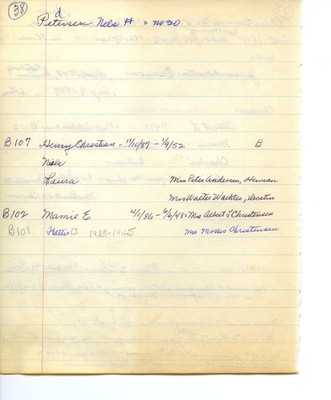 38
d
Petersen Nels H. = no 30
B107 Henry Christian = 11/10/87 - 1/9/52 B
Niels
Laura Mrs Peter Andersen, Herman
Mrs Walter Wachter, Decatur
B102 Mamie E. 4/1/86 - 6/6/48 = Mrs Albert S Christensen
B101 Hattie C 1989-1945 Mrs Morris Christensen